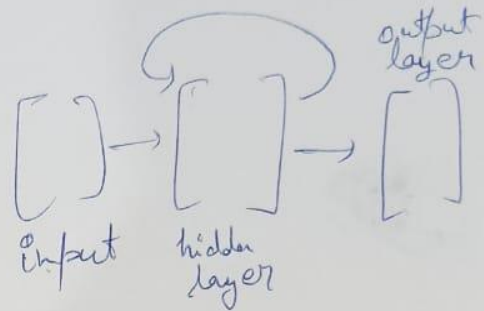 output
layer
input
hidden
layer